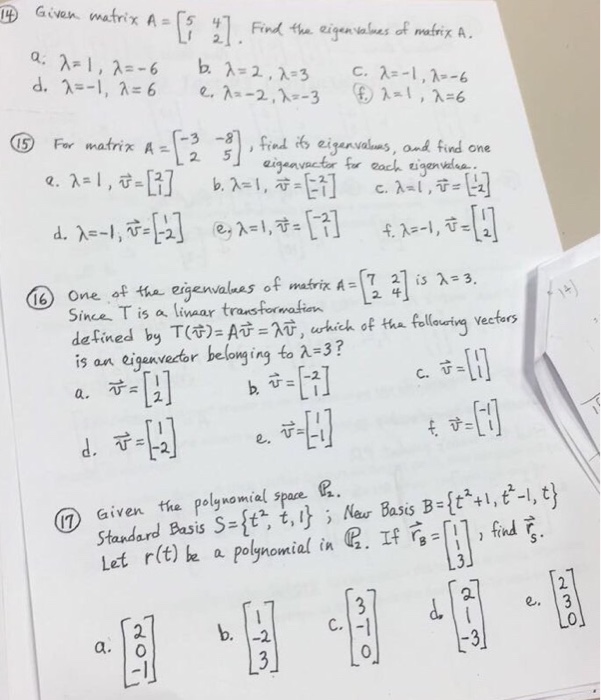 14 Given matrix A = [5 4; 1 2]. Find the eigenvalues of matrix A.
a. λ=1, λ=-6 b. λ=2, λ=3 c. λ=-1, λ=-6
d. λ=-1, λ=6 e. λ=-2, λ=-3 f. λ=1, λ=6
15 For matrix A = [-3 -8; 2 5], find its eigenvalues, and find one
eigenvector for each eigenvalue.
a. λ=1, v⃗=[2; 1] b. λ=1, v⃗=[-2; -1] c. λ=1, v⃗=[1; -2]
d. λ=-1, v⃗=[1; -2] e. λ=1, v⃗=[-2; 1] f. λ=-1, v⃗=[1; 2]
16 One of the eigenvalues of matrix A=[7 2; 2 4] is λ=3.
Since T is a linear transformation
defined by T(v⃗)=Av⃗=λv⃗, which of the following vectors
is an eigenvector belonging to λ=3?
a. v⃗=[1; 2] b. v⃗=[-2; 1] c. v⃗=[1; 1]
d. v⃗=[1; -2] e. v⃗=[1; -1] f. v⃗=[-1; 1]
17 Given the polynomial space ℙ₂.
Standard Basis S={t², t, 1} ; New Basis B={t²+1, t²-1, t}
Let r(t) be a polynomial in ℙ₂. If r⃗_B=[1; 1; 3], find r⃗_S.
a. [2; 0; -1] b. [1; -2; 3] c. [3; -1; 0] d. [2; 1; -3] e. [2; 3; 0]
14)